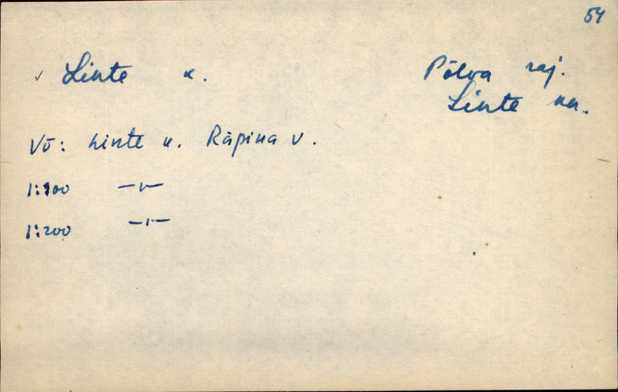 54
✓ Linte k. Põlva raj.
Linte kn.
Võ: Linte k. Räpina v.
1:100 —"—
1:200 —"—